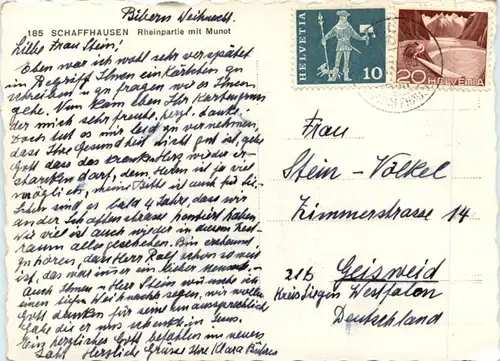 Bibern Weihnacht.
185 SCHAFFHAUSEN Rheinpartie mit Munot
Liebe Frau Stein!
Eben war ich wohl sehr verspätet
im Begriff Ihnen ein Kärtchen zu
schreiben u zu fragen wie es Ihnen
gehe. Nun kam eben Ihr Kartengruss
der mich sehr freute, herzl. dank.
Doch tut es mir leid zu vernehmen,
dass Ihre Gesundheit nicht gut ist, gebe
Gott dass das kranke Herz wieder er-
starken darf, dem Herrn ist ja viel
möglich, meine Bitte ist auch für Sie
Ihnen sind es bald 4 Jahre, dass wir
an der Schaffenstrasse
wie viel ist auch wieder in diesem Zeit-
raum alles geschehen. Bin
zu hören, dass Herr Ralf schon so weit
ist, das war immer ein lieber
Auch Ihnen u Herr Stein wünsche ich
einen tiefen Weihnachtssegen, wir wollen
Gott danken für seine unaussprechlich
Gabe die er uns schenkt in Jesus.
Ein herzliches Gott befohlen im neuen
Jahr Herzlich Grüsst Ihre Klara
HELVETIA
10
20 HELVETIA
Frau
Stein-Völkel
Zimmerstrasse 14
21b Geisweid
Kreis Siegen Westfalen
Deutschland